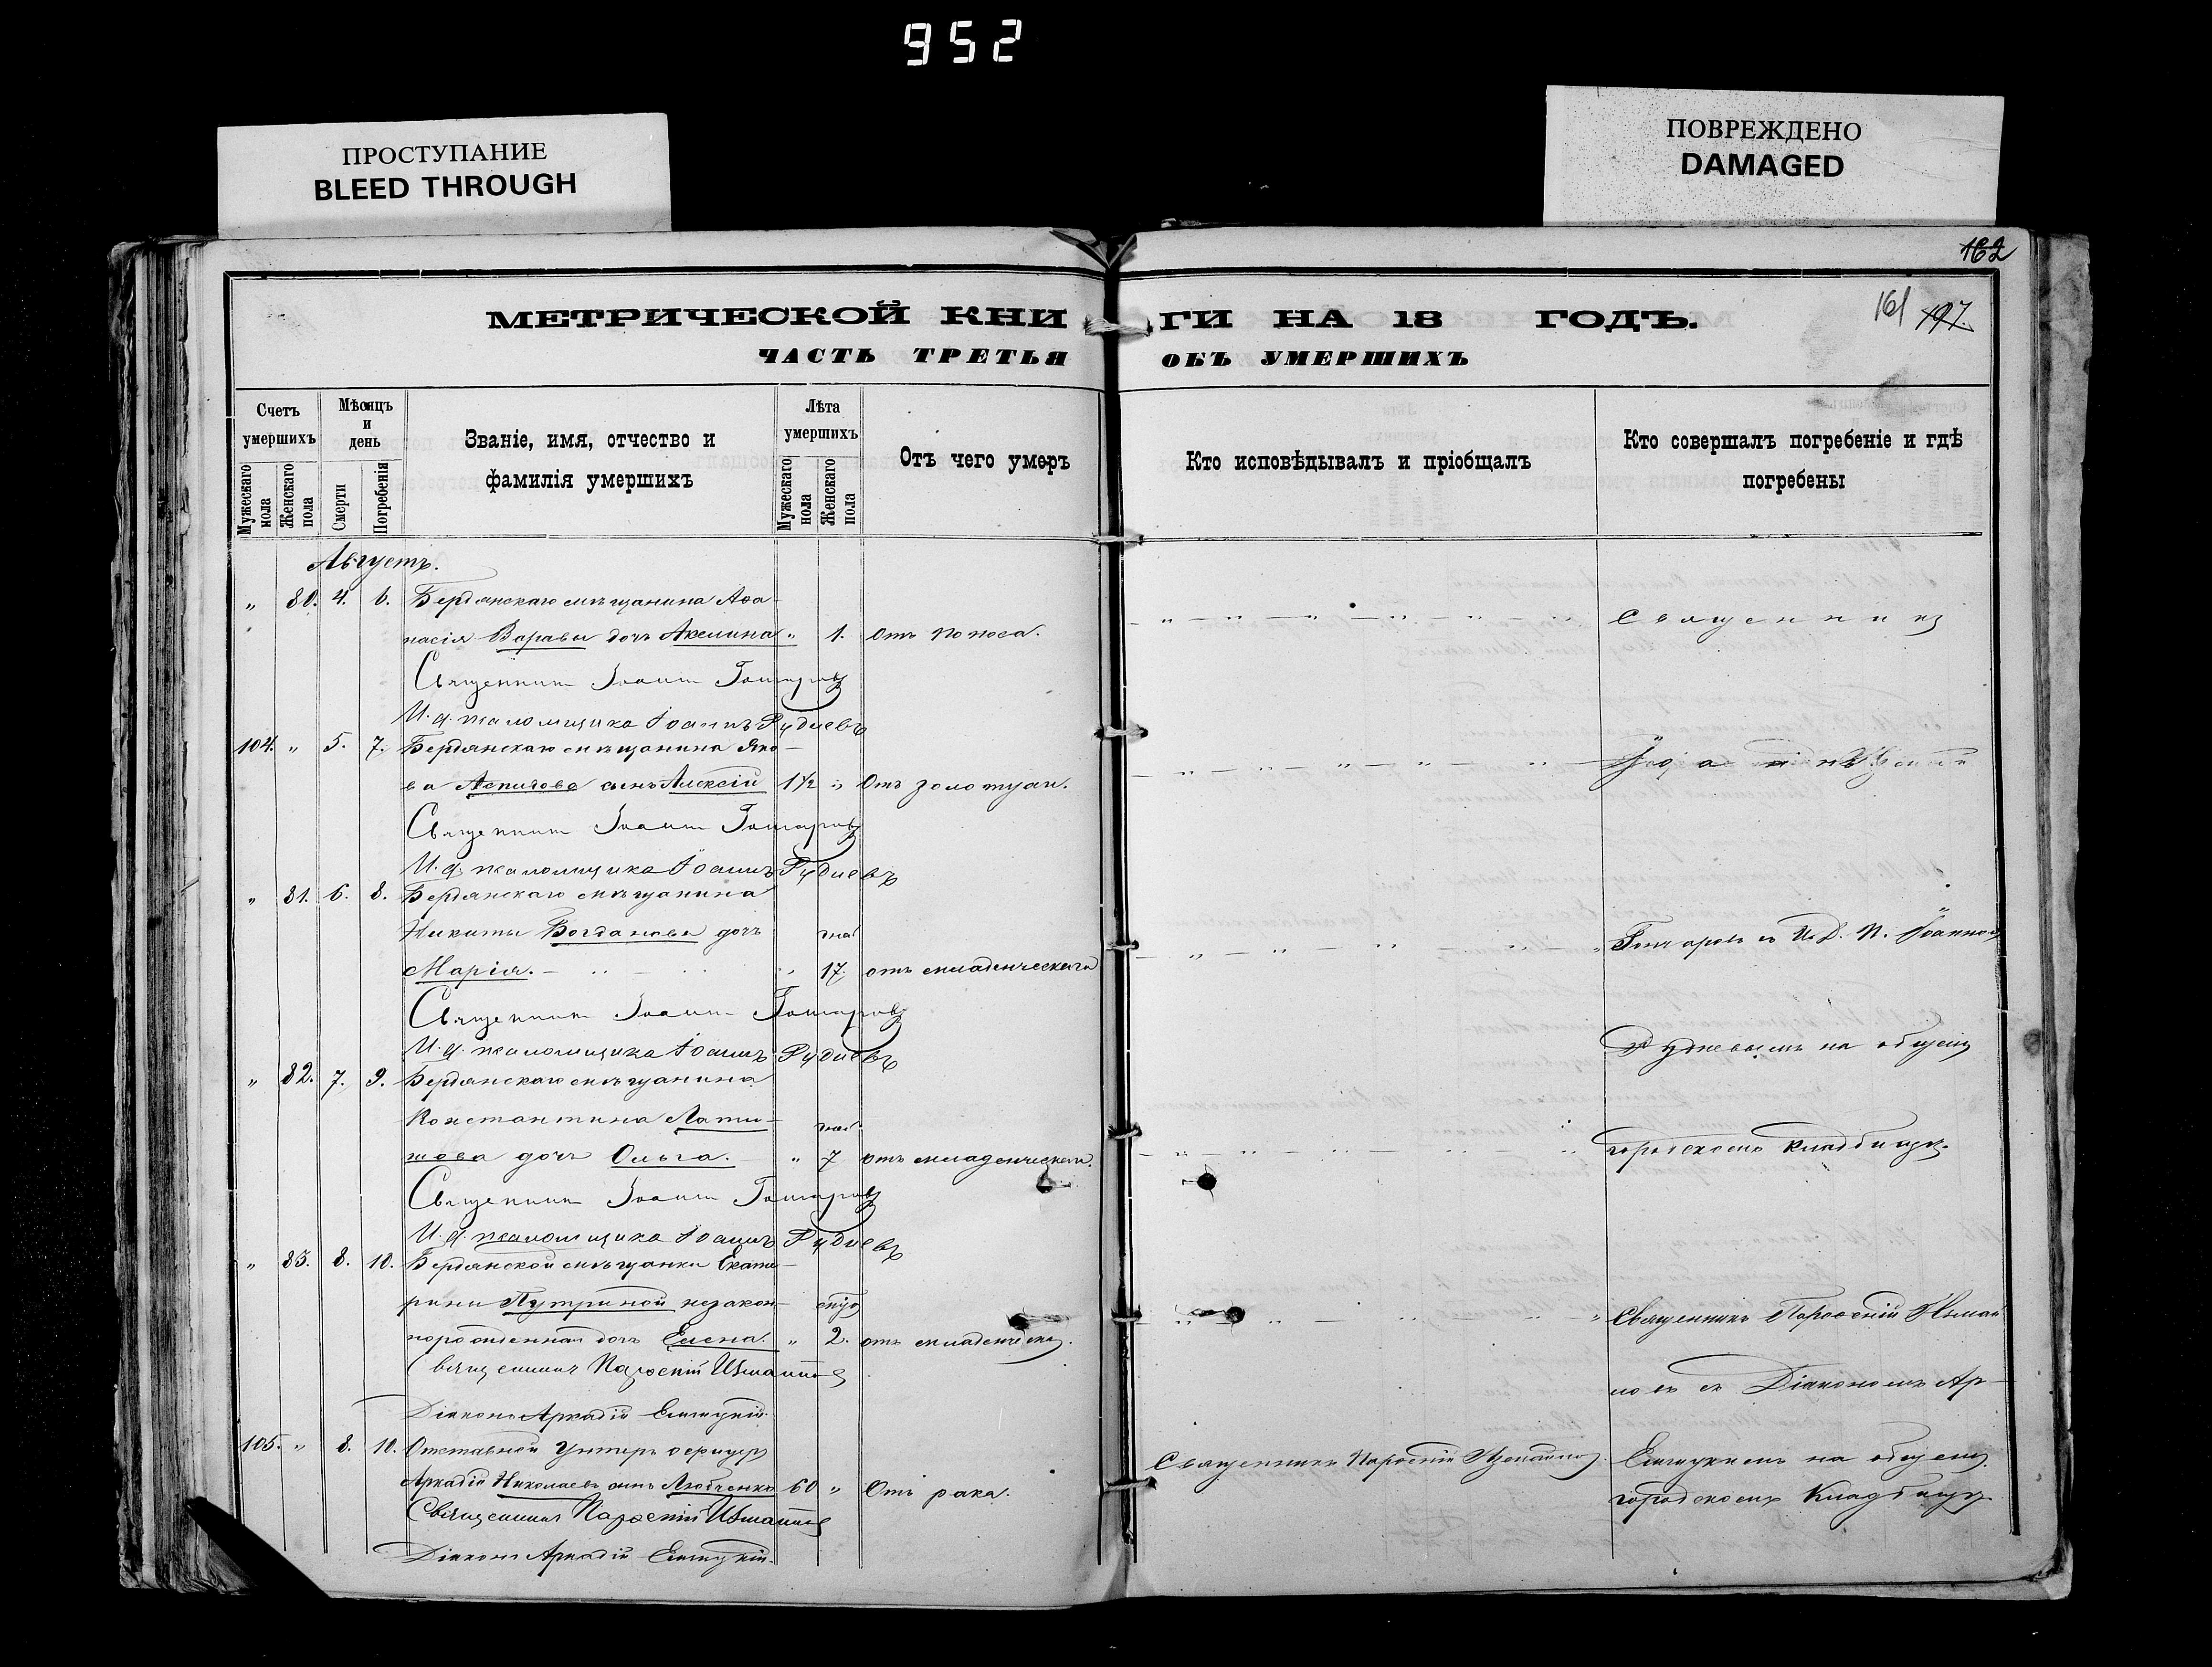 952
ПРОСТУПАНИЕ
BLEED THROUGH
ПОВРЕЖДЕНО
DAMAGED
162
161 197.
МЕТРИЧЕСКОЙ КНИ
ГИ НА 18 ГОДЪ.
ЧАСТЬ ТРЕТЬЯ
ОБЪ УМЕРШИХЪ
Счетъ умершихъ
Мужескаго пола
Женскаго пола
Мѣсяцъ и день
Смерти
Погребенія
Званіе, имя, отчество и
фамилія умершихъ
Лѣта умершихъ
Мужескаго пола
Женскаго пола
Отъ чего умеръ
Кто исповѣдывалъ и пріобщалъ
Кто совершалъ погребеніе и гдѣ
погребены
Августъ.
" 80. 4. 6. Бердянскаго мѣщанина Аѳа-
насія Варавы дочь Акелина " 1. отъ поноса.
Священникъ
Священникъ Іоаннъ Гончаровъ
И. д. псаломщика Іоаннъ Рудневъ
104. " 5. 7. Бердянскаго мѣщанина Яко-
ва сынъ Алексій 1½ " Отъ золотухи.
Священникъ Іоаннъ Гончаровъ
И. д. псаломщика Іоаннъ Рудневъ
" 81. 6. 8. Бердянскаго мѣщанина
Никиты Богданова дочь
Марія. " 17. отъ младенческаго
Гончаровъ съ И. Д. П. Іоанномъ
Священникъ Іоаннъ Гончаровъ
И. д. псаломщика Іоаннъ Рудневъ
Рудневымъ на общемъ
" 82. 7. 9. Бердянскаго мѣщанина
Константина Лати-
шова дочь Ольга. " 7 отъ младенческаго.
городскомъ кладбищѣ.
Священникъ Іоаннъ Гончаровъ
И. д. псаломщика Іоаннъ Рудневъ
" 83. 8. 10. Бердянской мѣщанки Екате-
рины Путриной незакон-
норожденная дочь Елена. " 2. отъ младенческ.
Священникъ Парѳеній Измаи
Священникъ Парѳеній Измаиловъ
ловъ съ Діакономъ Ар-
Діаконъ Аркадій
105. " 8. 10. Отставной Унтеръ офицеръ
Аркадій Николаевъ сынъ Любченко 60 " Отъ рака.
Священникъ Парѳеній Измаиловъ
на общемъ
городскомъ Кладбищѣ
Священникъ Парѳеній Измаиловъ
Діаконъ Аркадій